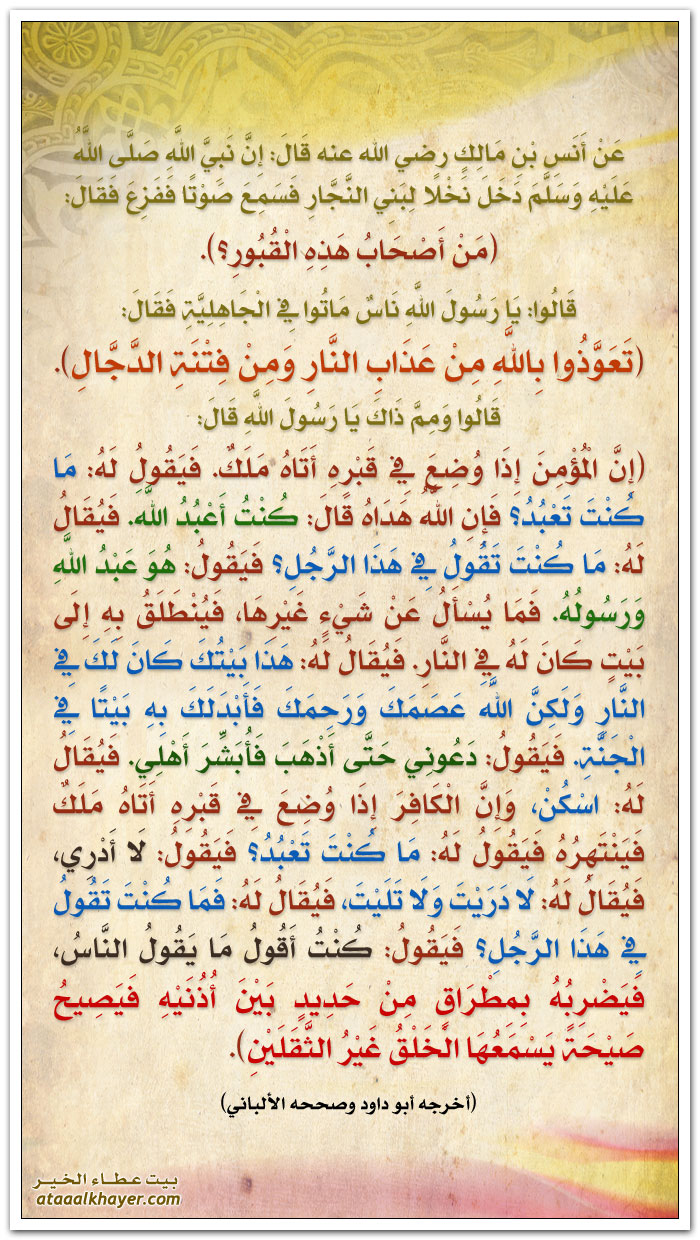 عَنْ أَنَسِ بْنِ مَالِكٍ رضي الله عنه قَالَ: إِنَّ نَبِيَّ اللَّهِ صَلَّى اللَّهُ
عَلَيْهِ وَسَلَّمَ دَخَلَ نَخْلًا لِبَنِي النَّجَّارِ فَسَمِعَ صَوْتًا فَفَزِعَ فَقَالَ:
(مَنْ أَصْحَابُ هَذِهِ الْقُبُورِ؟).
قَالُوا: يَا رَسُولَ اللَّهِ نَاسٌ مَاتُوا فِي الْجَاهِلِيَّةِ فَقَالَ:
(تَعَوَّذُوا بِاللَّهِ مِنْ عَذَابِ النَّارِ وَمِنْ فِتْنَةِ الدَّجَّالِ).
قَالُوا وَمِمَّ ذَاكَ يَا رَسُولَ اللَّهِ قَالَ:
(إِنَّ الْمُؤْمِنَ إِذَا وُضِعَ فِي قَبْرِهِ أَتَاهُ مَلَكٌ. فَيَقُولُ لَهُ: مَا
كُنْتَ تَعْبُدُ؟ فَإِنِ اللَّهُ هَدَاهُ قَالَ: كُنْتُ أَعْبُدُ اللَّهَ. فَيُقَالُ
لَهُ: مَا كُنْتَ تَقُولُ فِي هَذَا الرَّجُلِ؟ فَيَقُولُ: هُوَ عَبْدُ اللَّهِ
وَرَسُولُهُ. فَمَا يُسْأَلُ عَنْ شَيْءٍ غَيْرِهَا، فَيُنْطَلَقُ بِهِ إِلَى
بَيْتٍ كَانَ لَهُ فِي النَّارِ. فَيُقَالُ لَهُ: هَذَا بَيْتُكَ كَانَ لَكَ فِي
النَّارِ وَلَكِنَّ اللَّهَ عَصَمَكَ وَرَحِمَكَ فَأَبْدَلَكَ بِهِ بَيْتًا فِي
الْجَنَّةِ. فَيَقُولُ: دَعُونِي حَتَّى أَذْهَبَ فَأُبَشِّرَ أَهْلِي. فَيُقَالُ
لَهُ: اسْكُنْ، وَإِنَّ الْكَافِرَ إِذَا وُضِعَ فِي قَبْرِهِ أَتَاهُ مَلَكٌ
فَيَنْتَهِرُهُ فَيَقُولُ لَهُ: مَا كُنْتَ تَعْبُدُ؟ فَيَقُولُ: لَا أَدْرِي،
فَيُقَالُ لَهُ: لَا دَرَيْتَ وَلَا تَلَيْتَ، فَيُقَالُ لَهُ: فَمَا كُنْتَ تَقُولُ
فِي هَذَا الرَّجُلِ؟ فَيَقُولُ: كُنْتُ أَقُولُ مَا يَقُولُ النَّاسُ،
فَيَضْرِبُهُ بِمِطْرَاقٍ مِنْ حَدِيدٍ بَيْنَ أُذُنَيْهِ فَيَصِيحُ
صَيْحَةً يَسْمَعُهَا الْخَلْقُ غَيْرُ الثَّقَلَيْنِ).
(أخرجه أبو داود وصححه الألباني)
بيت عطاء الخير
ataaalkhayer.com